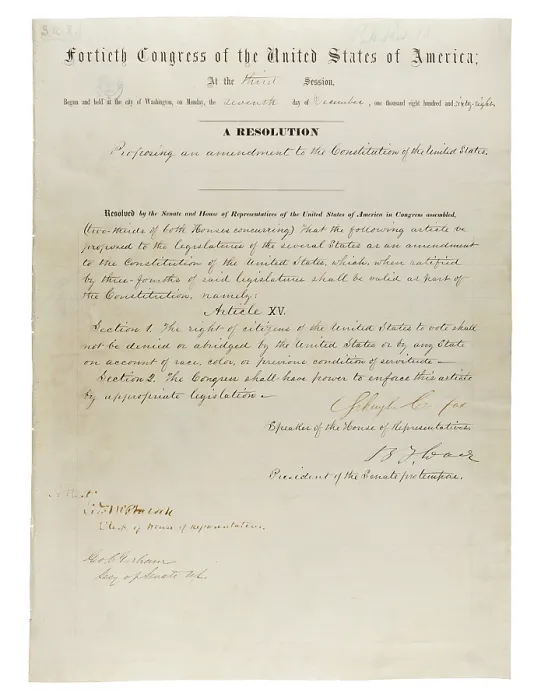 Fortieth Congress of the United States of America;
At the third Session,
Begun and held at the city of Washington, on Monday, the seventh day of December, one thousand eight hundred and sixty-eight
A RESOLUTION
Proposing an amendment to the Constitution of the United States.
Resolved by the Senate and House of Representatives of the United States of America in Congress assembled,
(two-thirds of both Houses concurring) That the following article be
proposed to the legislatures of the several States as an amendment
to the Constitution of the United States, which, when ratified
by three-fourths of said legislatures shall be valid as part of
the Constitution, namely:
Article XV.
Section 1. The right of citizens of the United States to vote shall
not be denied or abridged by the United States or by any State
on account of race, color, or previous condition of servitude—
Section 2. The Congress shall have power to enforce this article
by appropriate legislation—
Schuyler Colfax
Speaker of the House of Representatives.
B F Wade
President of the Senate protempore.
Attest
Clerk of House of Representatives.
Geo. C. Gorham
Secy of Senate U.S.